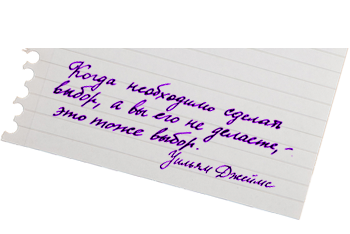 Когда необходимо сделать
выбор, а вы его не делаете, -
это тоже выбор.
Уильям Джеймс